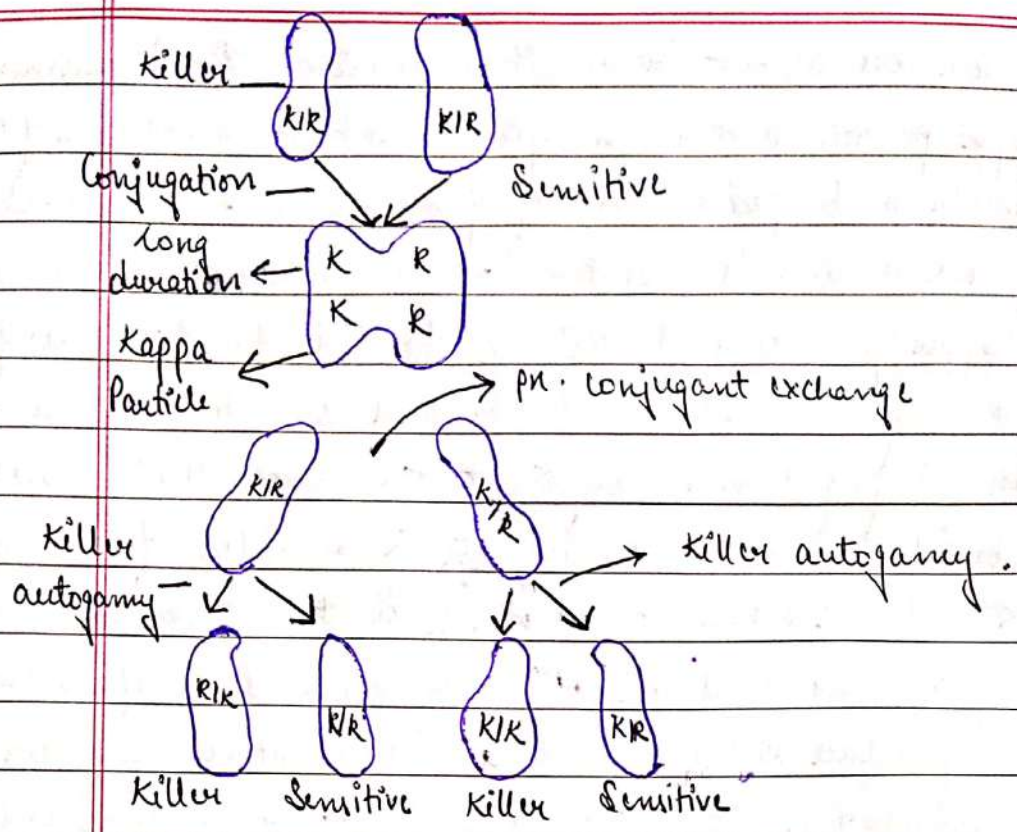 Killer
K/R K/R
Conjugation Sensitive
long
duration
K R
K R
Kappa
Particle
pn. conjugant exchange
K/R K/R
Killer
autogamy
Killer autogamy.
R/K K/R K/K K/R
Killer Sensitive Killer Sensitive